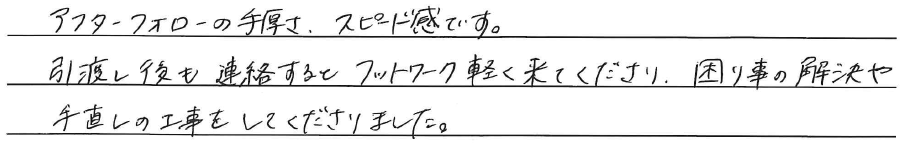 アフターフォローの手厚さ、スピード感です。
引渡し後も連絡するとフットワーク軽く来てくださり、困り事の解決や
手直しの工事をしてくださりました。